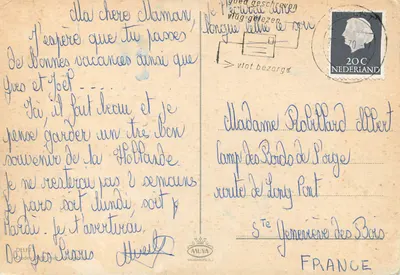 Ma chere Maman,
J'espère que tu passes
de bonnes vacances ainsi que
Yves et Joël....
Ici, il fait beau et je
pense garder un très bon
souvenir de la Hollande
Je ne rentrerai pas 2 semaines
je pars soit lundi soit
Mardi. Je t'avertirai.
De Gros Bisous
longue lettre
goed geschreven
vlug gelezen
vlot bezorgd
20 C
NEDERLAND
Madame Robillard Albert
Camp des Bords de l'orge
route de Long Pont
Ste Geneviève des Bois
FRANCE